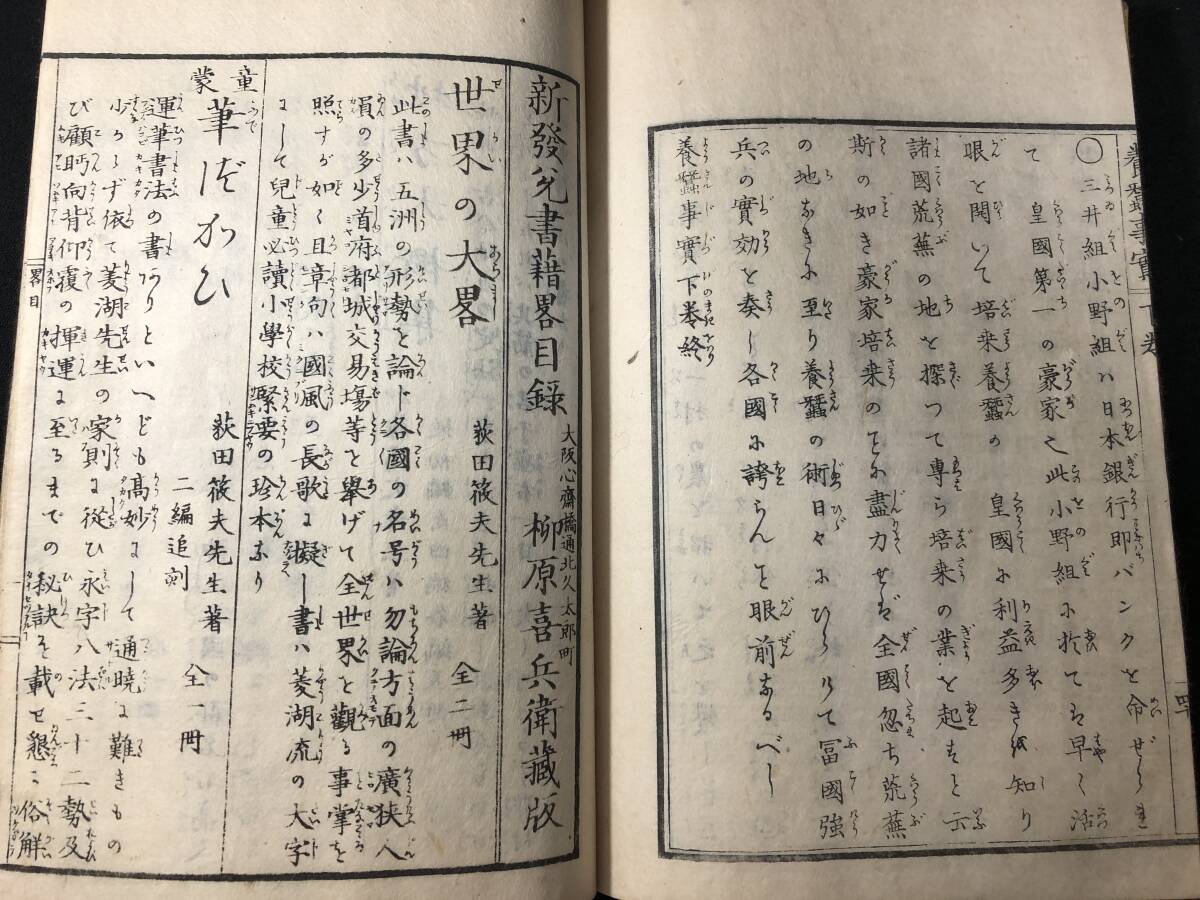 養蠶事實 下巻
○三井組小野組ハ日本銀行即バンクを命ぜられ
て 皇國第一の豪家也此小野組に於ても早く活
眼を開いて培桒養蠶の 皇國に利益多きを知り
諸國荒蕪の地を探つて專ら培桒の業を起すと云
斯の如き豪家培桒のことに盡力せば全國忽ち荒蕪
の地なきに至り養蠶の術日々にひらけて冨國強
兵の實効を奏し各國に誇らんを眼前なるべし
養蠶事實下巻終
新發兌書藉畧目録
大阪心齋橋通北久太郎町
柳原喜兵衛藏版
世界の大畧 荻田筱夫先生著 全二冊
此書ハ五洲の形勢を論じ各國の名号ハ勿論方面の廣狭人
員の多少首府都城交易塲等を舉げて全世界を觀る事掌を
照すが如く且章句ハ國風の長歌に擬し書ハ菱湖流の大字
にして兒童必讀小學校緊要の珍本なり
童蒙 筆づかひ 荻田筱夫先生著 二編追刻 全一冊
運筆書法の書ありといへども高妙にして通曉に難きもの
少からず依て菱湖先生の家則に從ひ永字八法三十二勢及
び顧眄向背仰覆の揮運に至るまでの秘訣を載せ懇に俗解
畧目